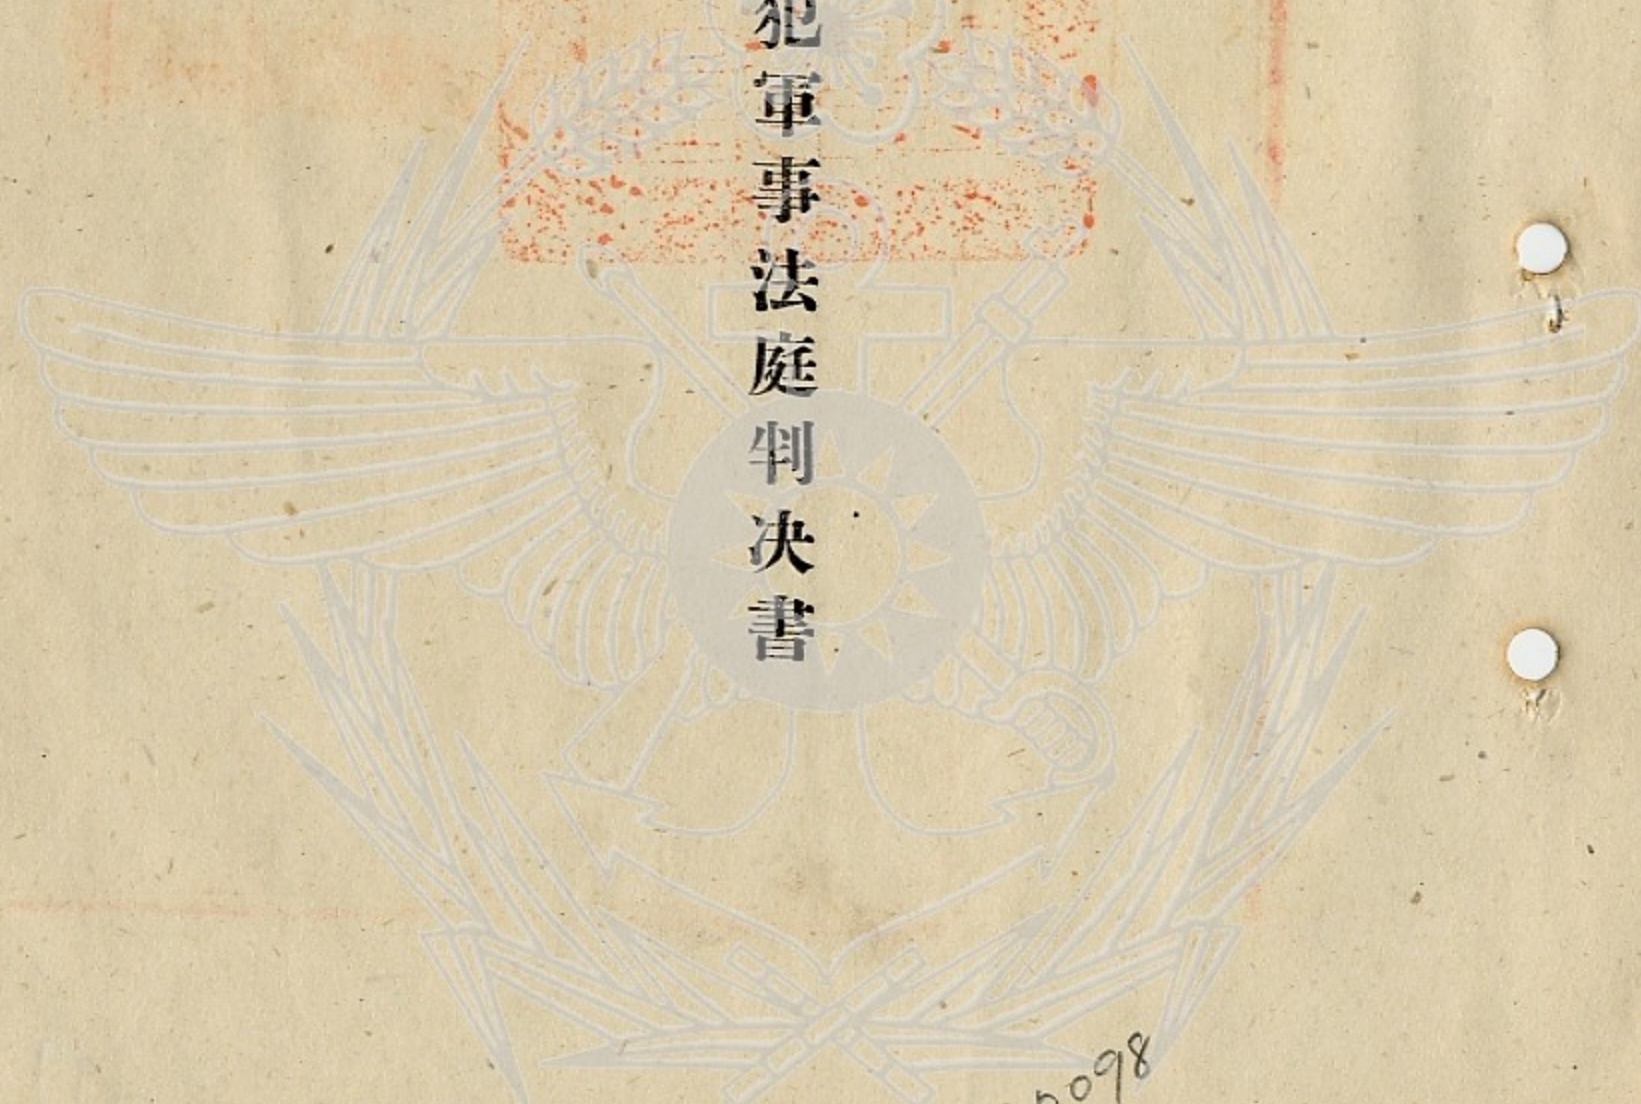 犯軍事法庭判决書
098